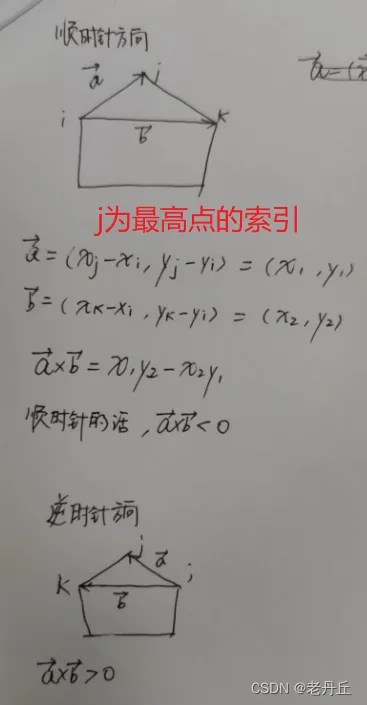 顺时针方向
a⃗ j
a⃗=(x⃗
i b⃗ k
j为最高点的索引
a⃗=(xj-xi, yj-yi)=(x1, y1)
b⃗=(xk-xi, yk-yi)=(x2, y2)
a⃗×b⃗=x1y2-x2y1
顺时针的话,a⃗×b⃗<0
逆时针方向
j a⃗
k b⃗ i
a⃗×b⃗>0
CSDN @老丹丘